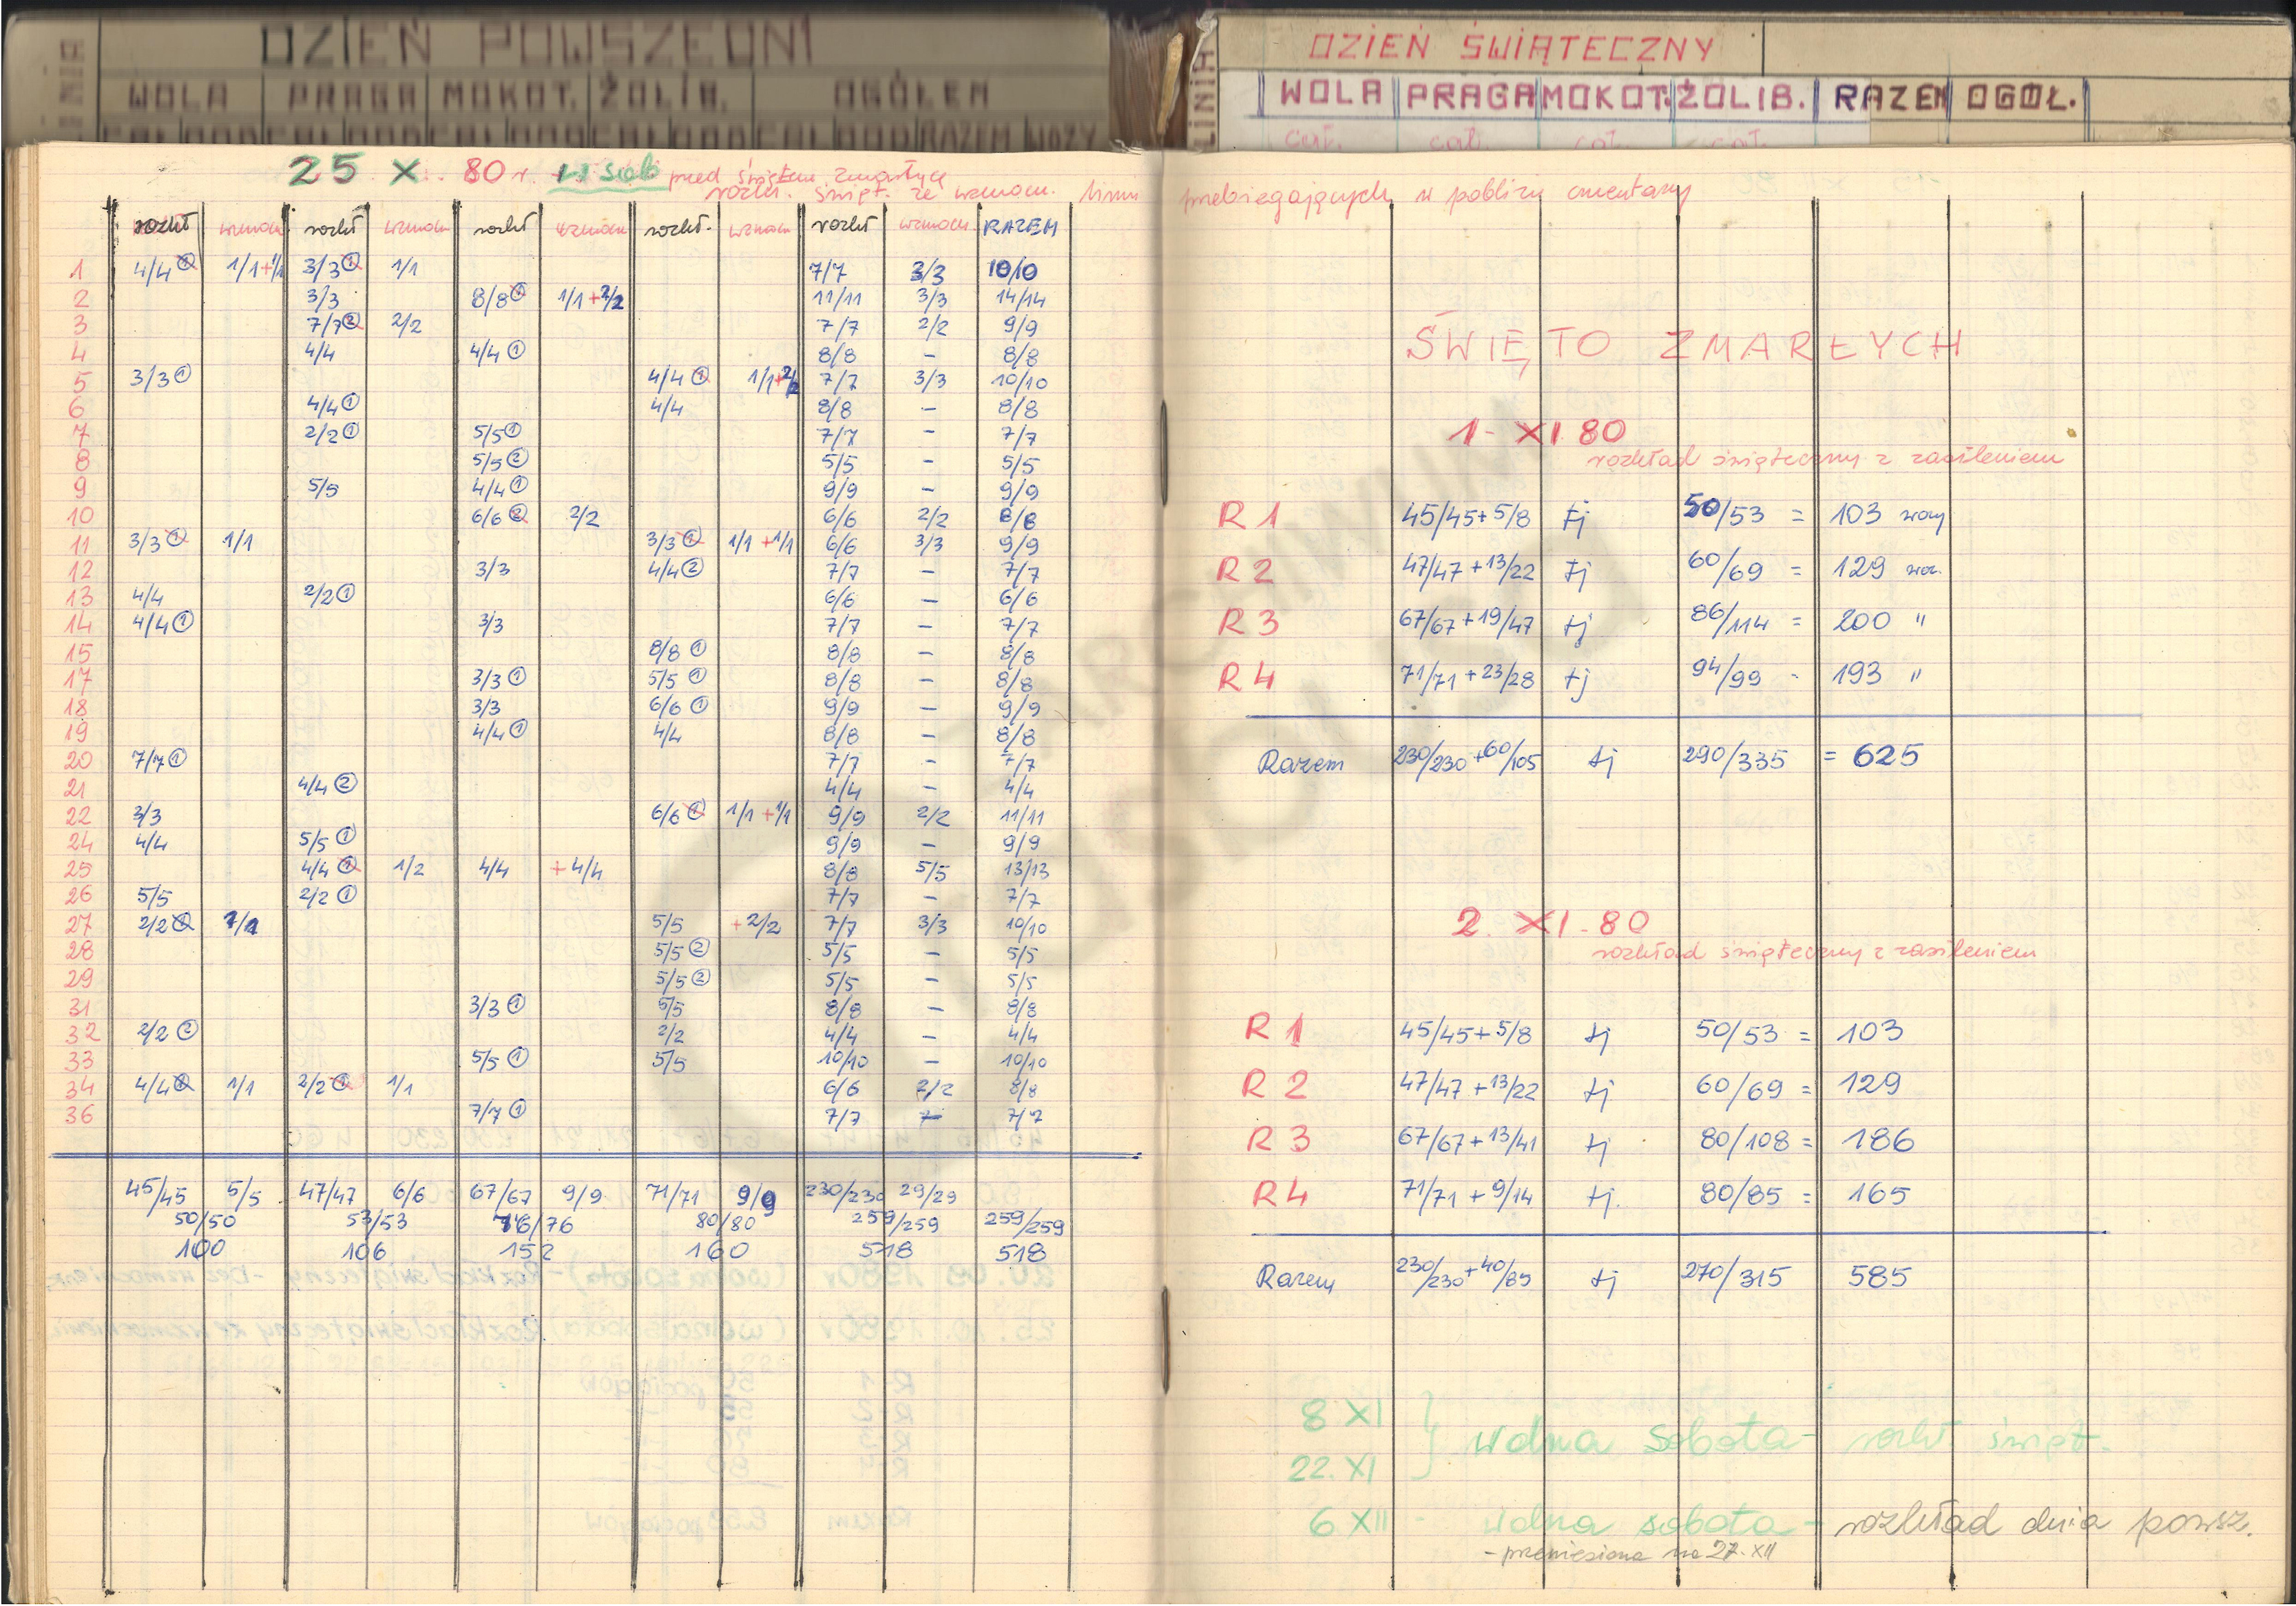 DZIEŃ POWSZEDNI
LINIA WOLA PRAGA MOKOT. ŻOLIB. OGÓŁEM
RAZEM WOZY
DZIEŃ ŚWIĄTECZNY
LINIA WOLA PRAGA MOKOT. ŻOLIB. RAZEM OGÓŁ.
cał. cał. cał. cał.
25 X 80 r. w sob przed świętem zmarłych
rozkł. święt. ze wzmocn. linii przebiegających w pobliżu cmentarzy
rozkł wzmocn rozkł wzmocn rozkł wzmocn rozkł. wzmocn rozkł wzmocn. RAZEM
1 4/4 ① 1/1 + 1/1 3/3 ① 1/1 7/7 3/3 10/10
2 3/3 8/8 ① 1/1 + 2/2 11/11 3/3 14/14
3 7/7 ② 2/2 7/7 2/2 9/9
4 4/4 4/4 ① 8/8 – 8/8
5 3/3 ① 4/4 ① 1/1 + 2/2 7/7 3/3 10/10
6 4/4 ① 4/4 8/8 – 8/8
7 2/2 ① 5/5 ① 7/7 – 7/7
8 5/5 ② 5/5 – 5/5
9 5/5 4/4 ① 9/9 – 9/9
10 6/6 ② 2/2 6/6 2/2 8/8
11 3/3 ① 1/1 3/3 ① 1/1 + 1/1 6/6 3/3 9/9
12 3/3 4/4 ② 7/7 – 7/7
13 4/4 2/2 ① 6/6 – 6/6
14 4/4 ① 3/3 7/7 – 7/7
15 8/8 ① 8/8 – 8/8
17 3/3 ① 5/5 ① 8/8 – 8/8
18 3/3 6/6 ① 9/9 – 9/9
19 4/4 ① 4/4 8/8 – 8/8
20 7/7 ① 7/7 – 7/7
21 4/4 ② 4/4 – 4/4
22 3/3 6/6 ① 1/1 + 1/1 9/9 2/2 11/11
24 4/4 5/5 ① 9/9 – 9/9
25 4/4 ① 1/2 4/4 + 4/4 8/8 5/5 13/13
26 5/5 2/2 ① 7/7 – 7/7
27 2/2 ① 1/1 5/5 + 2/2 7/7 3/3 10/10
28 5/5 ② 5/5 – 5/5
29 5/5 ② 5/5 – 5/5
31 3/3 ① 5/5 8/8 – 8/8
32 2/2 ② 2/2 4/4 – 4/4
33 5/5 ① 5/5 10/10 – 10/10
34 4/4 ① 1/1 2/2 ① 1/1 6/6 2/2 8/8
36 7/7 ① 7/7 – 7/7
45/45 5/5 47/47 6/6 67/67 9/9 71/71 9/9 230/230 29/29
50/50 53/53 76/76 80/80 259/259 259/259
100 106 152 160 518 518
ŚWIĘTO ZMARŁYCH
1 - XI 80
rozkład świąteczny z zasileniem
R 1 45/45 + 5/8 tj 50/53 = 103 wozy
R 2 47/47 + 13/22 tj 60/69 = 129 woz.
R 3 67/67 + 19/47 tj 86/114 = 200 "
R 4 71/71 + 23/28 tj 94/99 - 193 "
Razem 230/230 + 60/105 tj 290/335 = 625
2. XI - 80
rozkład świąteczny z zasileniem
R 1 45/45 + 5/8 tj 50/53 = 103
R 2 47/47 + 13/22 tj 60/69 = 129
R 3 67/67 + 13/41 tj 80/108 = 186
R 4 71/71 + 9/14 tj. 80/85 = 165
Razem 230/230 + 40/85 tj 270/315 585
8 XI
22. XI } wolna sobota - rozkł. święt.
6 XII - wolna sobota - rozkład dnia powsz.
- przeniesiona na 27. XII